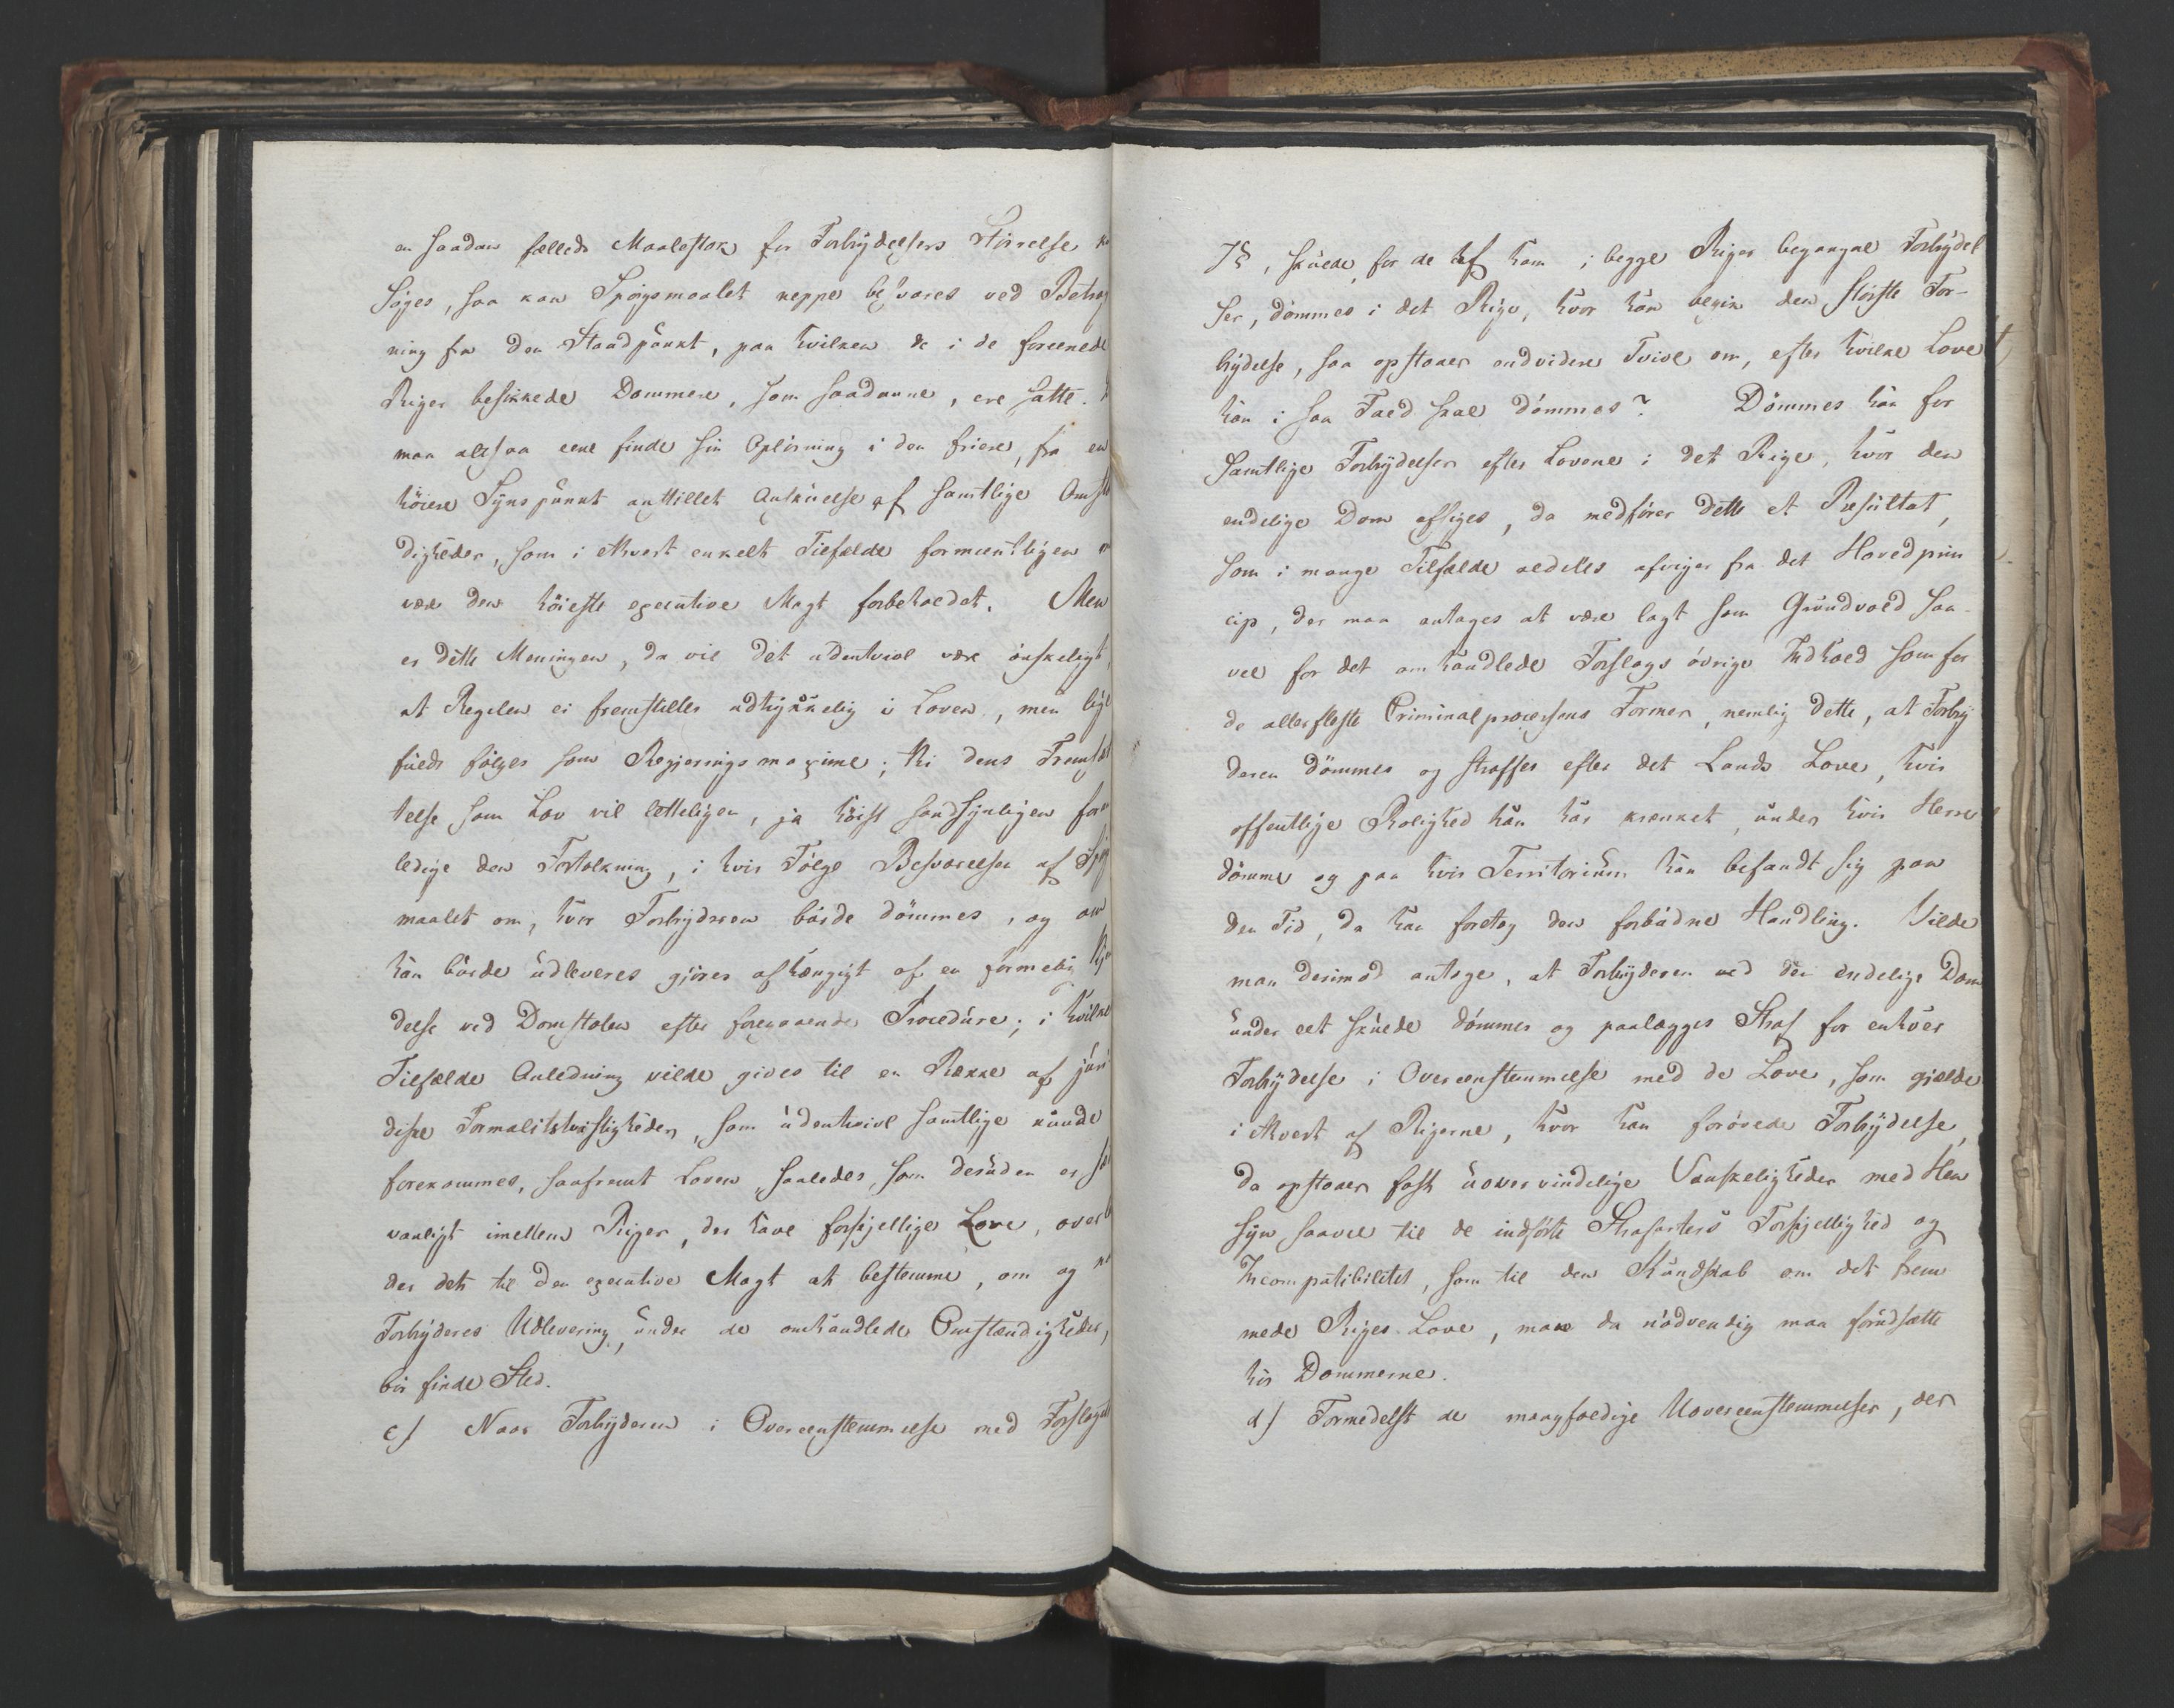 en saadan fælleds Maalestok for Forbrydelsers Störrelse
söges, saa kan Spörgsmaalet neppe besvares ved Betrag
ning fra den Standpunkt, paa hvilken de i de forenede
Riger beskikkede Dommere, som saadanne, ere satte.
maa altsaa eene finde sin Oplösning i den friere, fra en
höiere Synspunkt anstillet Anskuelse af samtlige Omstæn
digheder, som i ethvert enkelt Tilfælde formeentligen
være den höieste executive Magt forbeholdet. Men
er dette Meningen, da vil det udentvivl være önskeligt,
at Regelen ei fremstilles udtrykkelig i Loven, men lige
fuldt fölges som Regjerings maxime; thi dens Fremsæt
telse som Lov vil letteligen, ja höist sandsynligen for
ledige den Fortolkning, i hvis Fölge Besvarelsen af Spörgs
maalet om, hvor Forbryderen burde dömmes, og om
han burde udleveres gjöres afhængigt af en formelig Kjen
delse ved Domstolen efter foregaaende Procedure; i hvilket
Tilfælde Anledning vilde gives til en Række af juri
diske Formalitetsvistigheder, som udentvivl samtlige kunde
forekommes, saafremt Loven, saaledes, som desuden er sæd
vanligt imellem Riger, der have forskjellige Love, overl
der det til den executive Magt at bestemme, om og
Forbryderes Udlevering, under de omhandlede Omstændigheder,
bör finde Sted.
c) Naar Forbryderen i Overeensstemmelse med Forslagets
7§, skulde for de af ham i begge Riger begangne Forbrydel
ser, dömmes i det Rige, hvor han begik den störste For-
brydelse, saa opstaaer endvidere Tvivl om, efter hvilke Love
han i saa Fald skal dömmes? Dömmes han for
samtlige Forbrydelser efter Lovene i det Rige, hvor den
endelige Dom afsiges, da medförer dette et Resultat,
som i mange Tilfælde aldeles afviger fra det Hovedprin
cip, der maa antages at være lagt som Grundvold saa-
vel for det omhandlede Forslags övrige Indhold som for
de allerfleste Criminalprocessens Former, nemlig dette, at Forbry
deren dömmes og straffes efter det Lands Love, hvis
offentlige Rolighed han har krænket, under hvis Herre
dömme og paa hvis Territorium han befandt sig paa
den Tid, da han foretog den forbudne Handling. Vilde
man derimod antage, at Forbryderen ved den endelige Dom
under eet skulde dömmes og paalægges Straf for enhver
Forbrydelse i Overeensstemmelse med de Love, som gjælde
i ethvert af Rigerne, hvor han forövede Forbrydelse,
da opstaaer fast uovervindelige Vanskeligheder med Hen
syn saavel til de indförte Strafarters Forskjellighed og
Incompatibilitet, som til den Kundskab om det frem
mede Riges Love, man da nödvendig maa forudsætte
hos Dommerne.
d) Formedelst de mangfoldige Uovereensstemmelser, der